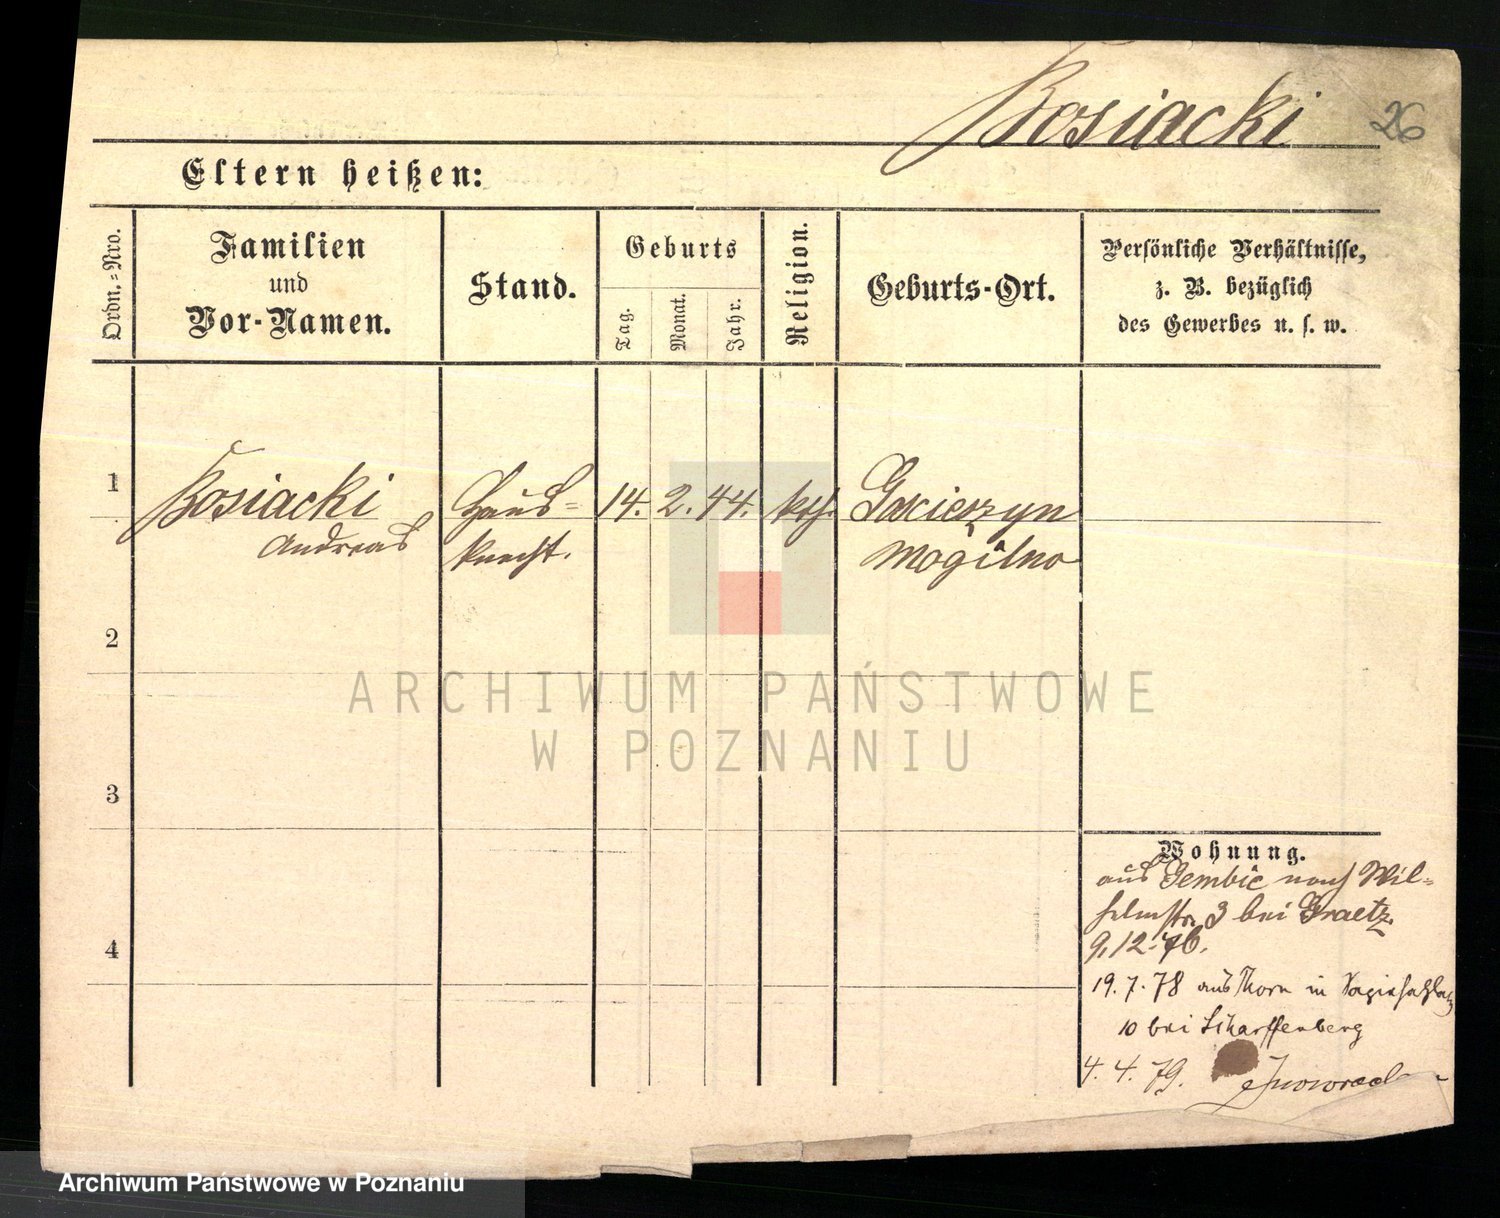 Kosiacki 26
Eltern heißen:
Ordn.=Nro.
Familien
und
Vor-Namen.
Stand.
Geburts
Tag.
Monat.
Jahr.
Religion.
Geburts-Ort.
Persönliche Verhältnisse,
z. B. bezüglich
des Gewerbes u. s. w.
1 Kosiacki Haus= 14. 2. 44. kth. Goscieszyn
Andreas knecht. Mogilno
2
ARCHIWUM PAŃSTWOWE
W POZNANIU
3
Wohnung.
aus Gembic nach Wil=
helmstr. 3 bei Graetz.
4
9.12.76.
19.7.78 aus Thorn in
10 bei Scharffenberg
4.4.79.
Archiwum Państwowe w Poznaniu